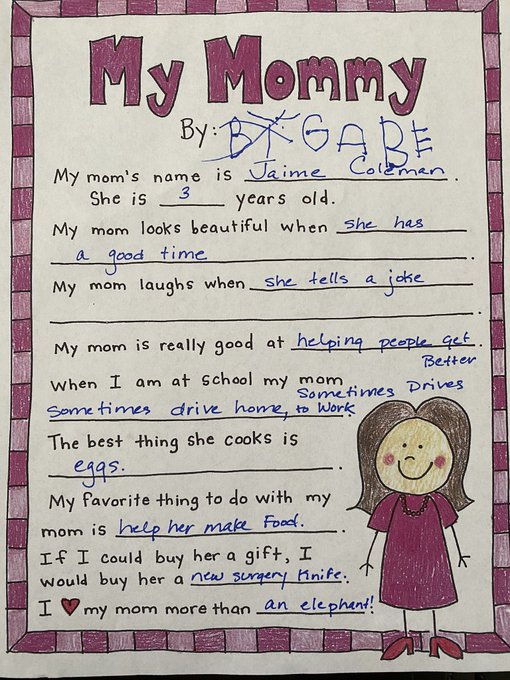 My Mommy
By: BY: GABE
My mom's name is Jaime Coleman.
She is 3 years old.
My mom looks beautiful when she has
a good time.
My mom laughs when she tells a joke
.
My mom is really good at helping people get.
Better
When I am at school my mom
Sometimes Drives
Sometimes drive home, to Work.
The best thing she cooks is
eggs. .
My favorite thing to do with my
mom is help her make Food. .
If I could buy her a gift, I
would buy her a new surgery Knife.
I ❤ my mom more than an elephant!